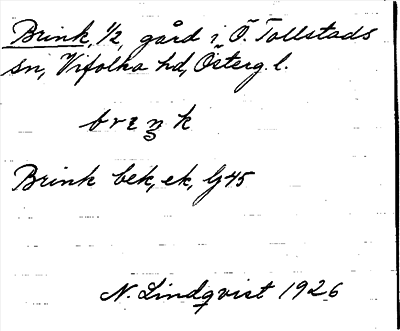 Brink, 1/2, gård i Ö. Tollstads
sn, Vifolka hd, Österg. l.
brink
Brink bek, ek, Gj 45
N. Lindqvist 1926